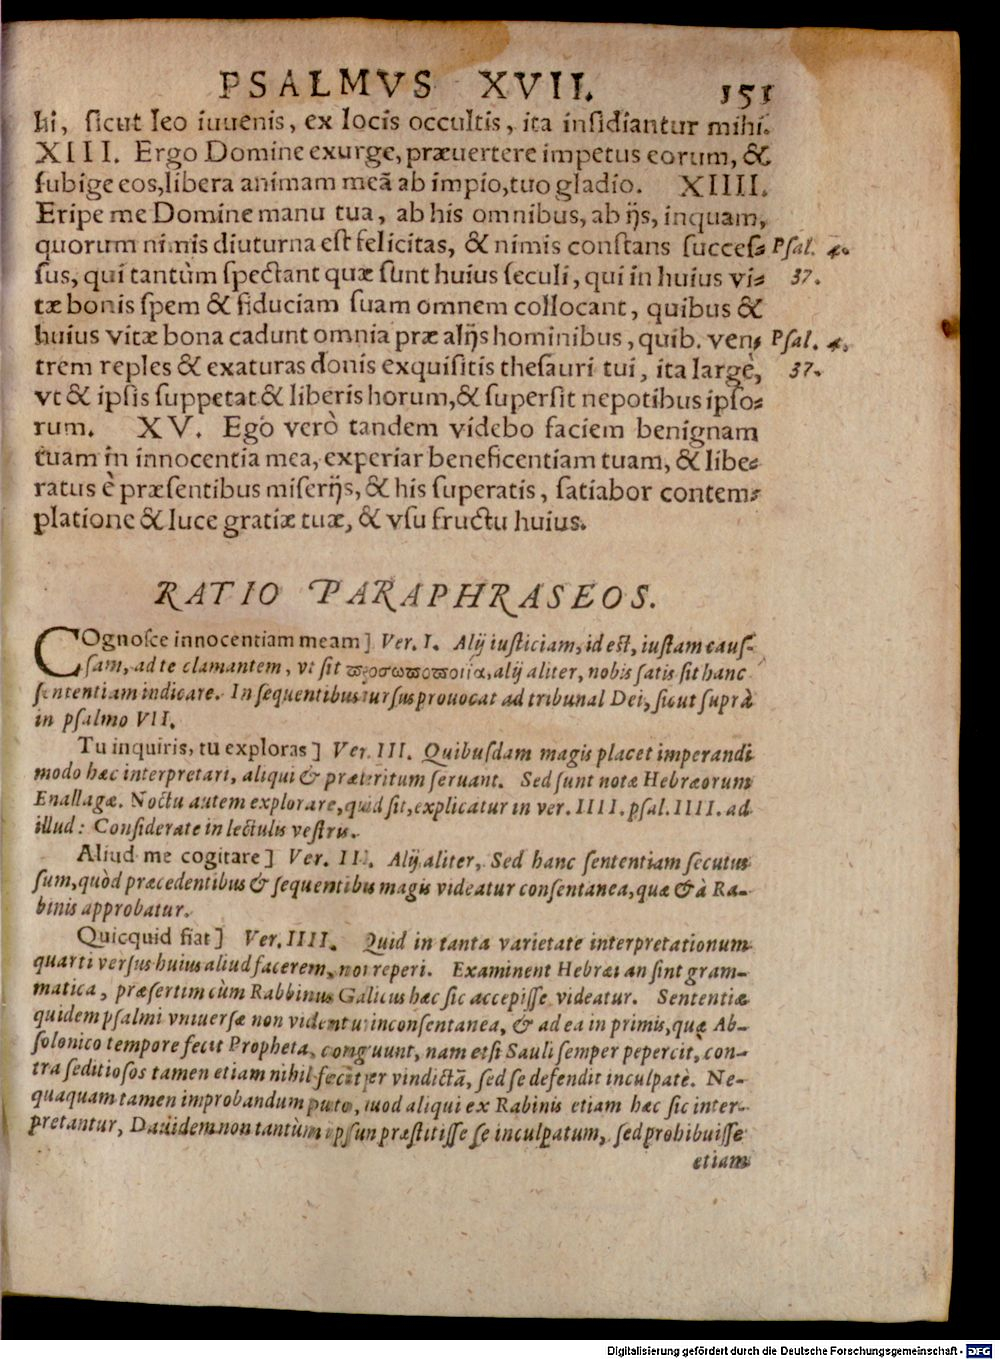 PSALMVS XVII. 151
hi, ſicut leo iuuenis, ex locis occultis, ita inſidiantur mihi.
XIII. Ergo Domine exurge, præuertere impetus eorum, &
ſubige eos, libera animam meā ab impio, tuo gladio. XIIII.
Eripe me Domine manu tua, ab his omnibus, ab ijs, inquam,
quorum nimis diuturna eſt felicitas, & nimis conſtans ſucceſ- Pſal. 4.
ſus, qui tantùm ſpectant quæ ſunt huius ſeculi, qui in huius vi- 37.
tæ bonis ſpem & fiduciam ſuam omnem collocant, quibus &
huius vitæ bona cadunt omnia præ alijs hominibus, quib. ven- Pſal. 4.
trem reples & exaturas donis exquiſitis theſauri tui, ita largè, 37.
vt & ipſis ſuppetat & liberis horum, & ſuperſit nepotibus ipſo-
rum. XV. Ego verò tandem videbo faciem benignam
tuam in innocentia mea, experiar beneficentiam tuam, & libe-
ratus è præſentibus miſerijs, & his ſuperatis, ſatiabor contem-
platione & luce gratiæ tuæ, & vſu fructu huius.
RATIO PARAPHRASEOS.
COgnoſce innocentiam meam] Ver. I. Alij iuſticiam, id eſt, iuſtam cauſ-
ſam, ad te clamantem, vt ſit ϖροσωϖοϖοιία, alij aliter, nobis ſatis ſit hanc
ſententiam indicare. In ſequentibus rurſus prouocat ad tribunal Dei, ſicut ſuprà
in pſalmo VII.
Tu inquiris, tu exploras] Ver. III. Quibuſdam magis placet imperandi
modo hæc interpretari, aliqui & præteritum ſeruant. Sed ſunt notæ Hebræorum
Enallagæ. Noctu autem explorare, quid ſit, explicatur in ver. IIII. pſal. IIII. ad
illud: Conſiderate in lectulis veſtris.
Aliud me cogitare] Ver. III. Alij aliter, Sed hanc ſententiam ſecutus
ſum, quòd præcedentibus & ſequentibus magis videatur conſentanea, quæ & à Ra-
binis approbatur.
Quicquid fiat] Ver. IIII. Quid in tanta varietate interpretationum
quarti verſus huius aliud facerem, non reperi. Examinent Hebræi an ſint gram-
matica, præſertim cùm Rabbinus Galicus hæc ſic accepiſſe videatur. Sententiæ
quidem pſalmi vniuerſæ non videntur inconſentanea, & ad ea in primis, quæ Ab-
ſolonico tempore fecit Propheta, congruunt, nam etſi Sauli ſemper pepercit, con-
tra ſeditioſos tamen etiam nihil fecit per vindictā, ſed ſe defendit inculpatè. Ne-
quaquam tamen improbandum puto, quod aliqui ex Rabinis etiam hæc ſic inter-
pretantur, Dauidem non tantùm ipſum præſtitiſſe ſe inculpatum, ſed prohibuiſſe
etiam
Digitalisierung gefördert durch die Deutsche Forschungsgemeinschaft - DFG